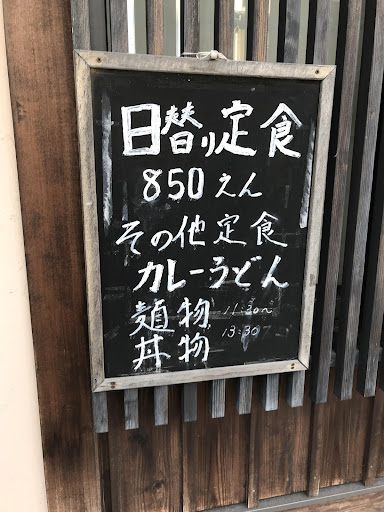 日替り定食
850えん
その他定食
カレーうどん
麺物
丼物
11:30〜
13:30